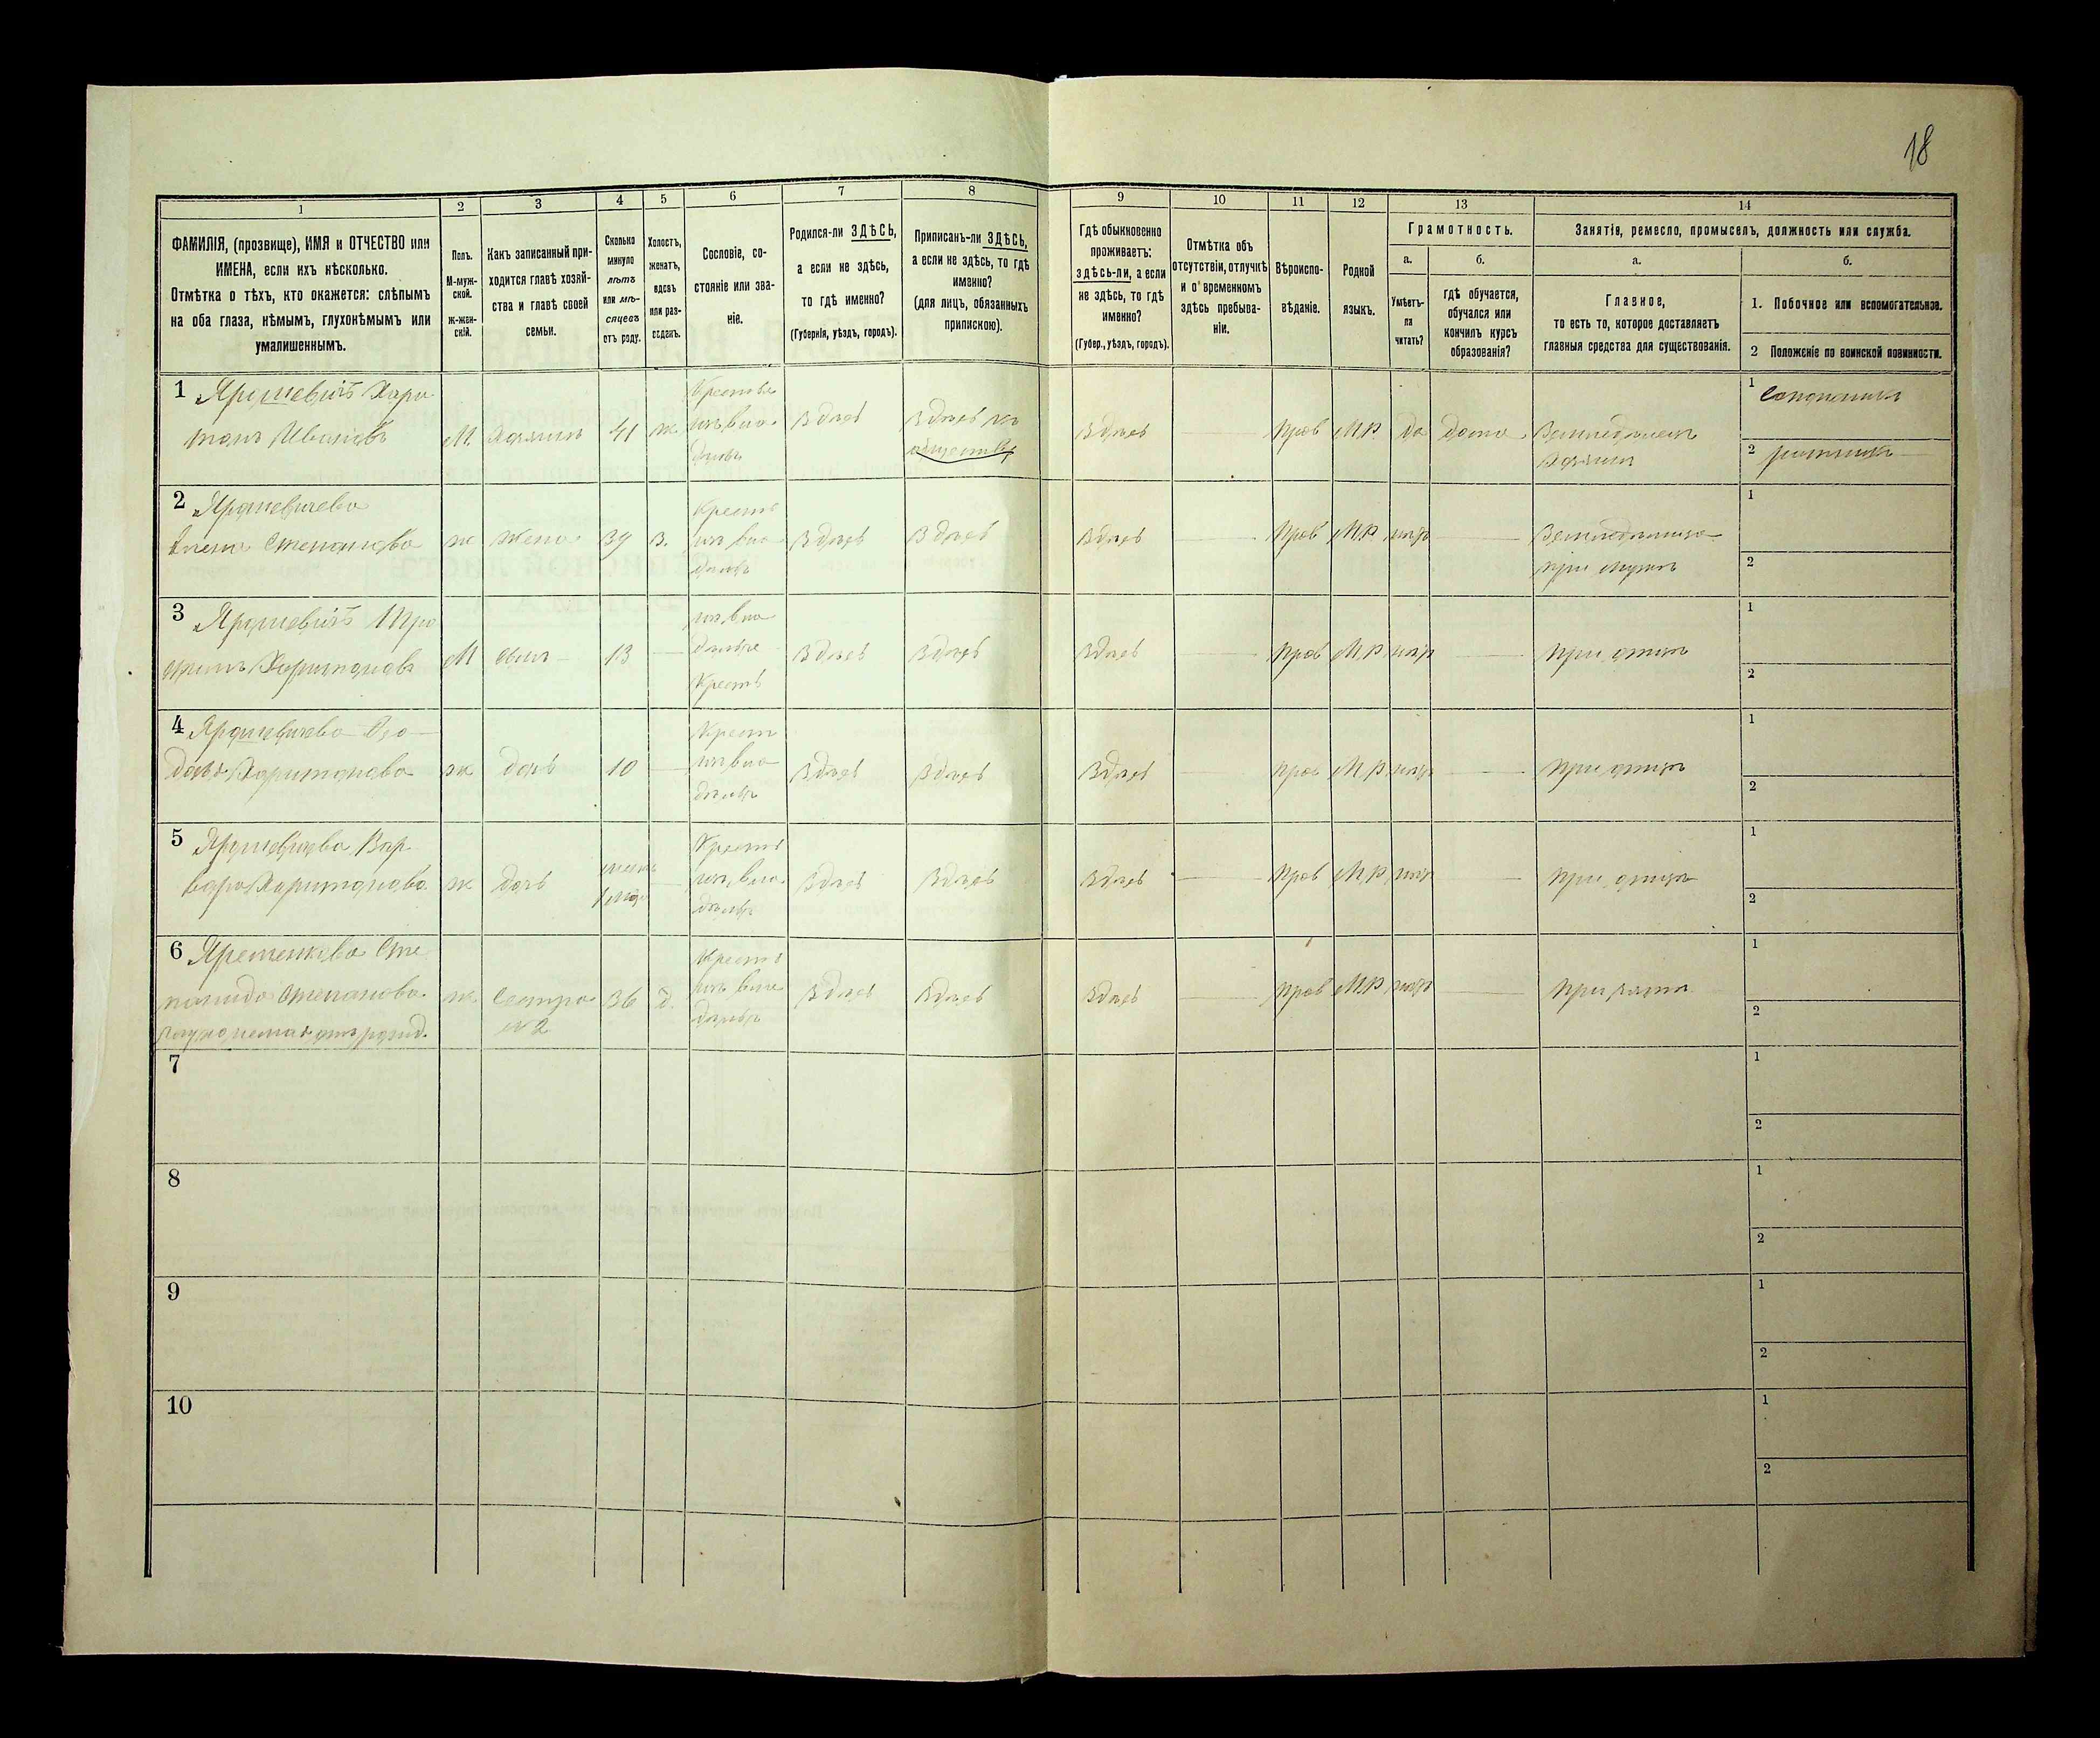 18
1
2
3
4
5
6
7
8
9
10
11
12
13
14
ФАМИЛІЯ, (прозвище), ИМЯ и ОТЧЕСТВО или
ИМЕНА, если ихъ нѣсколько.
Отмѣтка о тѣхъ, кто окажется: слѣпымъ
на оба глаза, нѣмымъ, глухонѣмымъ или
умалишеннымъ.
Полъ.
М-муж-
ской.
ж-жен-
скій.
Какъ записанный при-
ходится главѣ хозяй-
ства и главѣ своей
семьи.
Сколько
минуло
лѣтъ
или мѣ-
сяцевъ
отъ роду.
Холостъ,
женатъ,
вдовъ
или раз-
веденъ.
Сословіе, со-
стояніе или зва-
ніе.
Родился-ли ЗДѢСЬ,
а если не здѣсь,
то гдѣ именно?
(Губернія, уѣздъ, городъ).
Приписанъ-ли ЗДѢСЬ,
а если не здѣсь, то гдѣ
именно?
(для лицъ, обязанныхъ
припискою).
Гдѣ обыкновенно
проживаетъ:
здѣсь-ли, а если
не здѣсь, то гдѣ
именно?
(Губер., уѣздъ, городъ).
Отмѣтка объ
отсутствіи, отлучкѣ
и о временномъ
здѣсь пребыва-
ніи.
Вѣроиспо-
вѣданіе.
Родной
языкъ.
Грамотность.
а.
Умѣетъ-
ли
читать?
б.
гдѣ обучается,
обучался или
кончилъ курсъ
образованія?
Занятіе, ремесло, промыселъ, должность или служба.
а.
Главное,
то есть то, которое доставляетъ
главныя средства для существованія.
б.
1. Побочное или вспомогательное.
2 Положеніе по воинской повинности.
1 Хари
тонъ Ивановъ
М
Хозяинъ
41
ж
Крестья
Здѣсь
Здѣсь къ
обществу
Здѣсь
Прав
М.Р.
да
дома
Земледѣлецъ
Хозяинъ
1
2 ратникъ
2
Степанова
ж
Жена
39
З.
Крестья
Здѣсь
Здѣсь
Здѣсь
Прав
М.Р.
нѣтъ
Земледѣлица
при мужѣ
1
2
3 Тро
фимъ Харитоновъ
М
сынъ
13
Крестья
Здѣсь
Здѣсь
Здѣсь
Прав
М.Р.
нѣтъ
при отцѣ
1
2
4
Харитонова
ж
дочь
10
Крест
Здѣсь
Здѣсь
Здѣсь
Прав
М.Р.
нѣтъ
при отцѣ
1
2
5 Вар
вара Харитонова
ж
дочь
Крестья
Здѣсь
Здѣсь
Здѣсь
Прав
М.Р.
нѣтъ
при отцѣ
1
2
6 Сте
панида Степанова
глухонемая отъ рожд.
ж
Сестра
№2
36
д.
Крестья
Здѣсь
Здѣсь
Здѣсь
Прав
М.Р.
нѣтъ
1
2
7
1
2
8
1
2
9
1
2
10
1
2